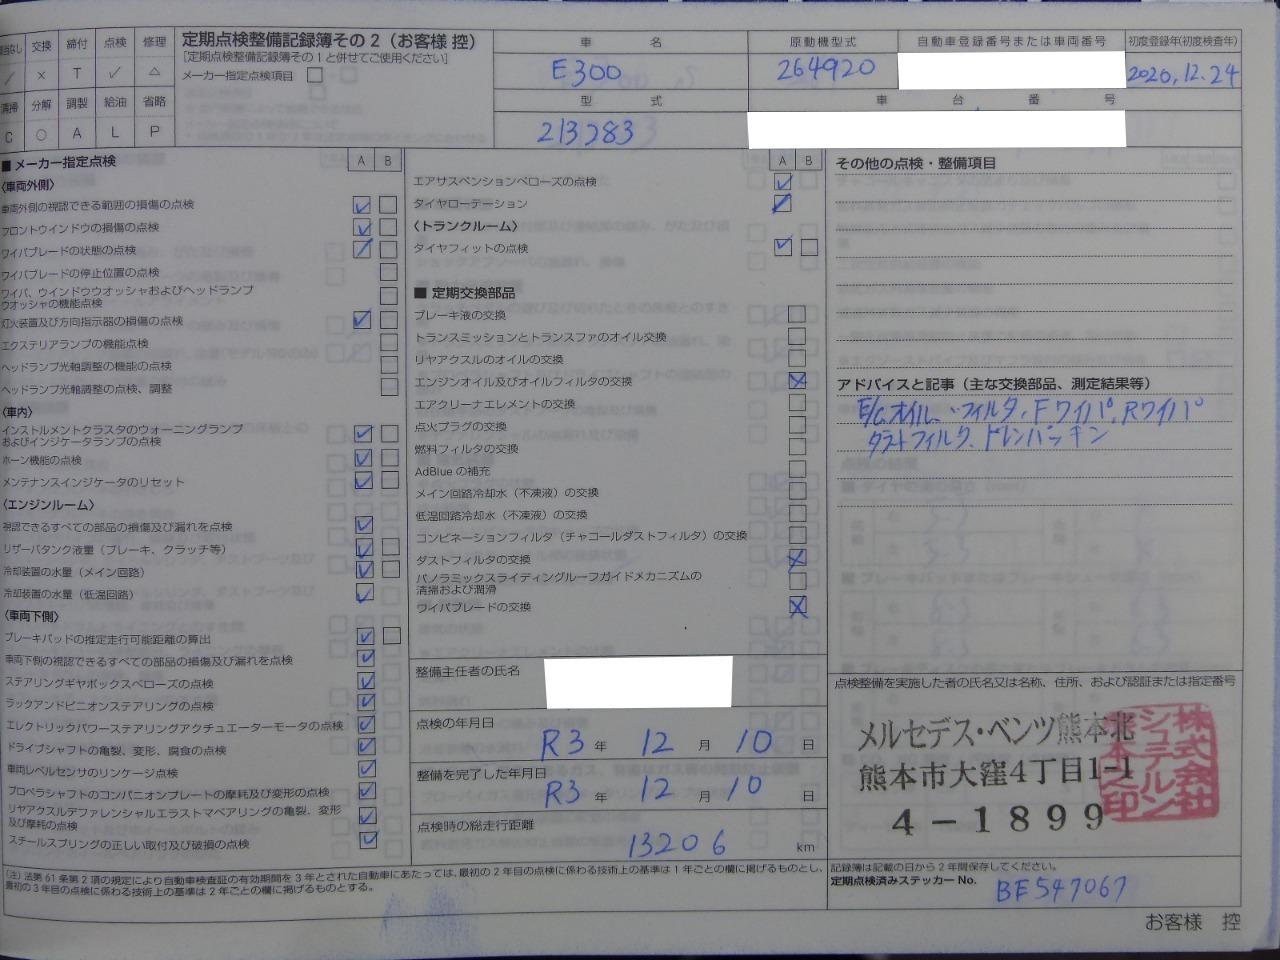 定期点検整備記録簿その2(お客様 控)
[定期点検整備記録簿その1と併せてご使用ください]
メーカー指定点検項目
交換 締付 点検 修理
/ × T ✓ △
清掃 分解 調製 給油 省略
C ○ A L P
車 名
E300
原動機型式
264920
自動車登録番号または車両番号
初度登録年(初度検査年)
2020.12.24
型 式
213283
車 台 番 号
■ メーカー指定点検
A B
〈車両外側〉
車両外側の視認できる範囲の損傷の点検
フロントウインドウの損傷の点検
ワイパブレードの状態の点検
ワイパブレードの停止位置の点検
ワイパ、ウインドウウオッシャおよびヘッドランプ
ウオッシャの機能点検
灯火装置及び方向指示器の損傷の点検
エクステリアランプの機能点検
ヘッドランプ光軸調整の機能の点検
ヘッドランプ光軸調整の点検、調整
〈車内〉
インストルメントクラスタのウォーニングランプ
およびインジケータランプの点検
ホーン機能の点検
メンテナンスインジケータのリセット
〈エンジンルーム〉
視認できるすべての部品の損傷及び漏れを点検
リザーバタンク液量(ブレーキ、クラッチ等)
冷却装置の水量(メイン回路)
冷却装置の水量(低温回路)
〈車両下側〉
ブレーキパッドの推定走行可能距離の算出
車両下側の視認できるすべての部品の損傷及び漏れを点検
ステアリングギヤボックスベローズの点検
ラックアンドピニオンステアリングの点検
エレクトリックパワーステアリングアクチュエーターモータの点検
ドライブシャフトの亀裂、変形、腐食の点検
車両レベルセンサのリンケージ点検
プロペラシャフトのコンパニオンプレートの摩耗及び変形の点検
リヤアクスルデファレンシャルエラストマベアリングの亀裂、変形
及び摩耗の点検
スチールスプリングの正しい取付及び破損の点検
A B
エアサスペンションベローズの点検
タイヤローテーション
〈トランクルーム〉
タイヤフィットの点検
■ 定期交換部品
ブレーキ液の交換
トランスミッションとトランスファのオイル交換
リヤアクスルのオイルの交換
エンジンオイル及びオイルフィルタの交換
エアクリーナエレメントの交換
点火プラグの交換
燃料フィルタの交換
AdBlueの補充
メイン回路冷却水(不凍液)の交換
低温回路冷却水(不凍液)の交換
コンビネーションフィルタ(チャコールダストフィルタ)の交換
ダストフィルタの交換
パノラミックスライディングルーフガイドメカニズムの
清掃および潤滑
ワイパブレードの交換
整備主任者の氏名
点検の年月日
R3 年 12 月 10 日
整備を完了した年月日
R3 年 12 月 10 日
点検時の総走行距離
13206 km
その他の点検・整備項目
アドバイスと記事(主な交換部品、測定結果等)
E/Gオイル、フィルタ、Fワイパ、Rワイパ
ダストフィルタ、ドレンパッキン
点検整備を実施した者の氏名又は名称、住所、および認証または指定番号
メルセデス・ベンツ熊本北
熊本市大窪4丁目1-1
4-1899
株式会社
シュテルン
熊本之印
記録簿は記載の日から2年間保存してください。
定期点検済みステッカーNo.
BE547067
(注)法第61条第2項の規定により自動車検査証の有効期間を3年とされた自動車にあたっては、最初の2年目の点検に係わる技術上の基準は1年ごとの欄に掲げるものとし、
最初の3年目の点検に係わる技術上の基準は2年ごとの欄に掲げるものとする。
お客様 控